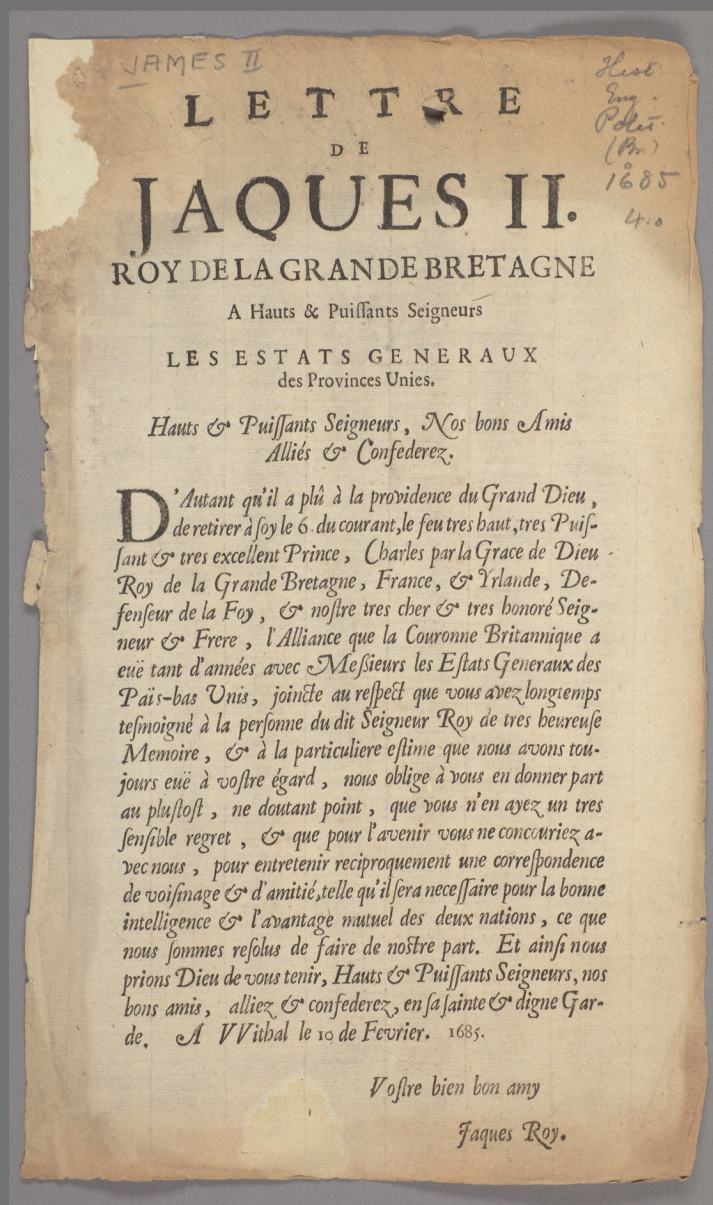 JAMES II
Hist
Eng.
Polit.
(Br)
1685
4.0
LETTRE
DE
JAQUES II.
ROY DE LA GRANDE BRETAGNE
A Hauts & Puiſſants Seigneurs
LES ESTATS GENERAUX
des Provinces Unies.
Hauts & Puiſſants Seigneurs, Nos bons Amis
Alliés & Confederez.
D'Autant qu'il a plû à la providence du Grand Dieu,
de retirer à ſoy le 6. du courant, le feu tres haut, tres Puiſ-
ſant & tres excellent Prince, Charles par la Grace de Dieu
Roy de la Grande Bretagne, France, & Yrlande, De-
fenſeur de la Foy, & noſtre tres cher & tres honoré Seig-
neur & Frere, l'Alliance que la Couronne Britannique a
euë tant d'années avec Meſſieurs les Eſtats Generaux des
Païs-bas Unis, joincte au reſpect que vous avez longtemps
teſmoigné à la perſonne du dit Seigneur Roy de tres heureuſe
Memoire, & à la particuliere eſtime que nous avons tou-
jours euë à voſtre égard, nous oblige à vous en donner part
au pluſtoſt, ne doutant point, que vous n'en ayez un tres
ſenſible regret, & que pour l'avenir vous ne concouriez a-
vec nous, pour entretenir reciproquement une correſpondence
de voiſinage & d'amitié, telle qu'il ſera neceſſaire pour la bonne
intelligence & l'avantage mutuel des deux nations, ce que
nous ſommes reſolus de faire de noſtre part. Et ainſi nous
prions Dieu de vous tenir, Hauts & Puiſſants Seigneurs, nos
bons amis, alliez & confederez, en ſa ſainte & digne Gar-
de. A VVithal le 10 de Fevrier. 1685.
Voſtre bien bon amy
Jaques Roy.